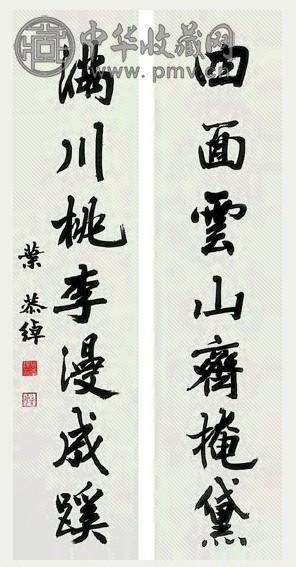 中华收藏网
www.pmv.cn
四面雲山齊掩黛
滿川桃李漫成蹊
葉恭綽